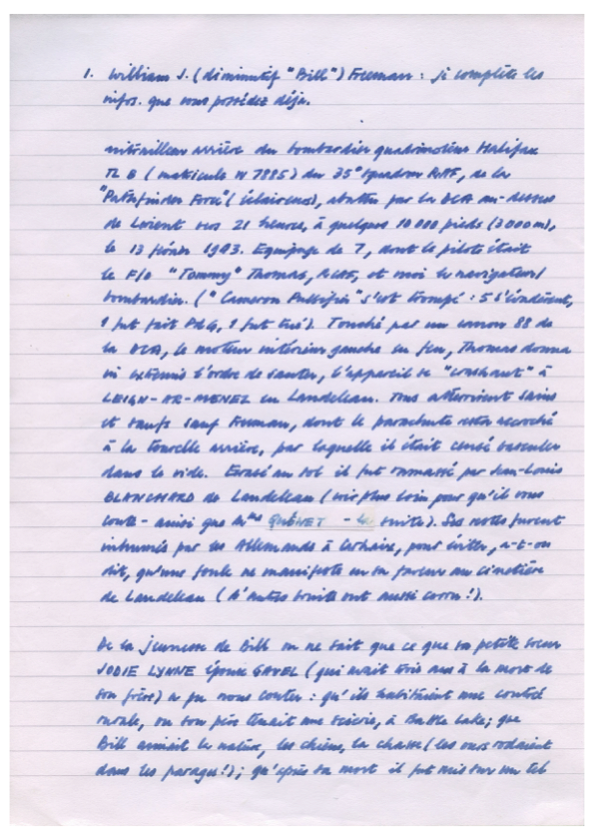 1. William J. (diminutif "Bill") Freeman : je complète les
infos. que vous possédez déjà.
mitrailleur arrière du bombardier quadrimoteur Halifax
TL B (matricule W 7885) du 35° squadron RAF, de la
"Pathfinder Force" (éclaireurs), abattu par la DCA au-dessus
de Lorient vers 21 heures, à quelques 10 000 pieds (3 000 m),
le 13 février 1943. Equipage de 7, dont le pilote était
le F/O "Tommy" Thomas, RAF, et moi le navigateur/
bombardier. (" Cameron " s'est trompé : 5 s'évadèrent,
1 fut fait PDG, 1 fut tué). Touché par un canon 88 de
la DCA, le moteur intérieur gauche en feu, Thomas donna
in extremis l'ordre de sauter, l'appareil se "crashant" à
LEIGN-AR-MENEZ en Landeleau. Tous atterrirent sains
et saufs sauf Freeman, dont le parachute resta accroché
à la tourelle arrière, par laquelle il était censé basculer
dans le vide. Ecrasé au sol il fut ramassé par Jean-Louis
BLANCHARD de Landeleau (voir plus loin pour qu'il vous
conte - ainsi que Mme QUÉNET - la suite). Ses restes furent
inhumés par les Allemands à Carhaix, pour éviter, a-t-on
dit, qu'une foule ne manifeste en sa faveur au cimetière
de Landeleau (d'autres bruits ont aussi couru !).
De la jeunesse de Bill on ne sait que ce que sa petite soeur
JODIE LYNNE épouse GAVEL (qui avait trois ans à la mort de
son frère) a pu nous conter : qu'ils habitaient une contrée
rurale, où son père tenait une scierie, à Battle Lake; que
Bill aimait la nature, les chiens, la chasse (les ours rodaient
dans les parages !); qu'après sa mort il fut mis sur un tel